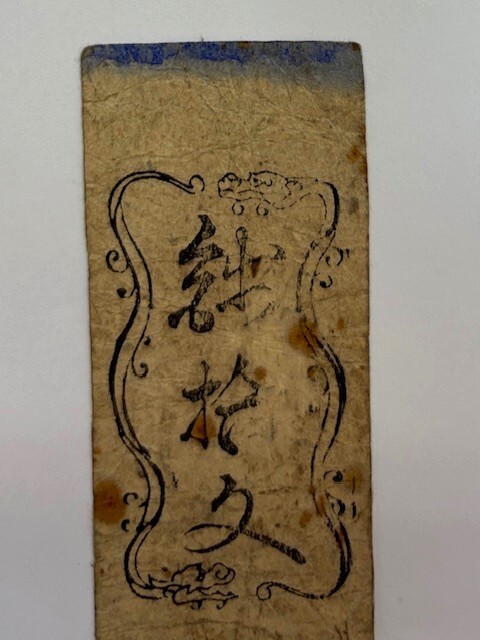 銭拾文